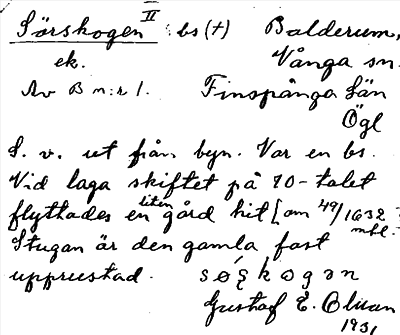 Sörskogen II bs (+) Balderum,
ek. Vånga sn.
Av B n:r 1. Finspånga län
Ögl
S. v. ut från byn. Var en bs.
Vid laga skiftet på 70-talet
flyttades en liten gård hit [om 49/1632
mbl.
Stugan är den gamla fast
upprustad.
Gustaf E. Olsson
1931